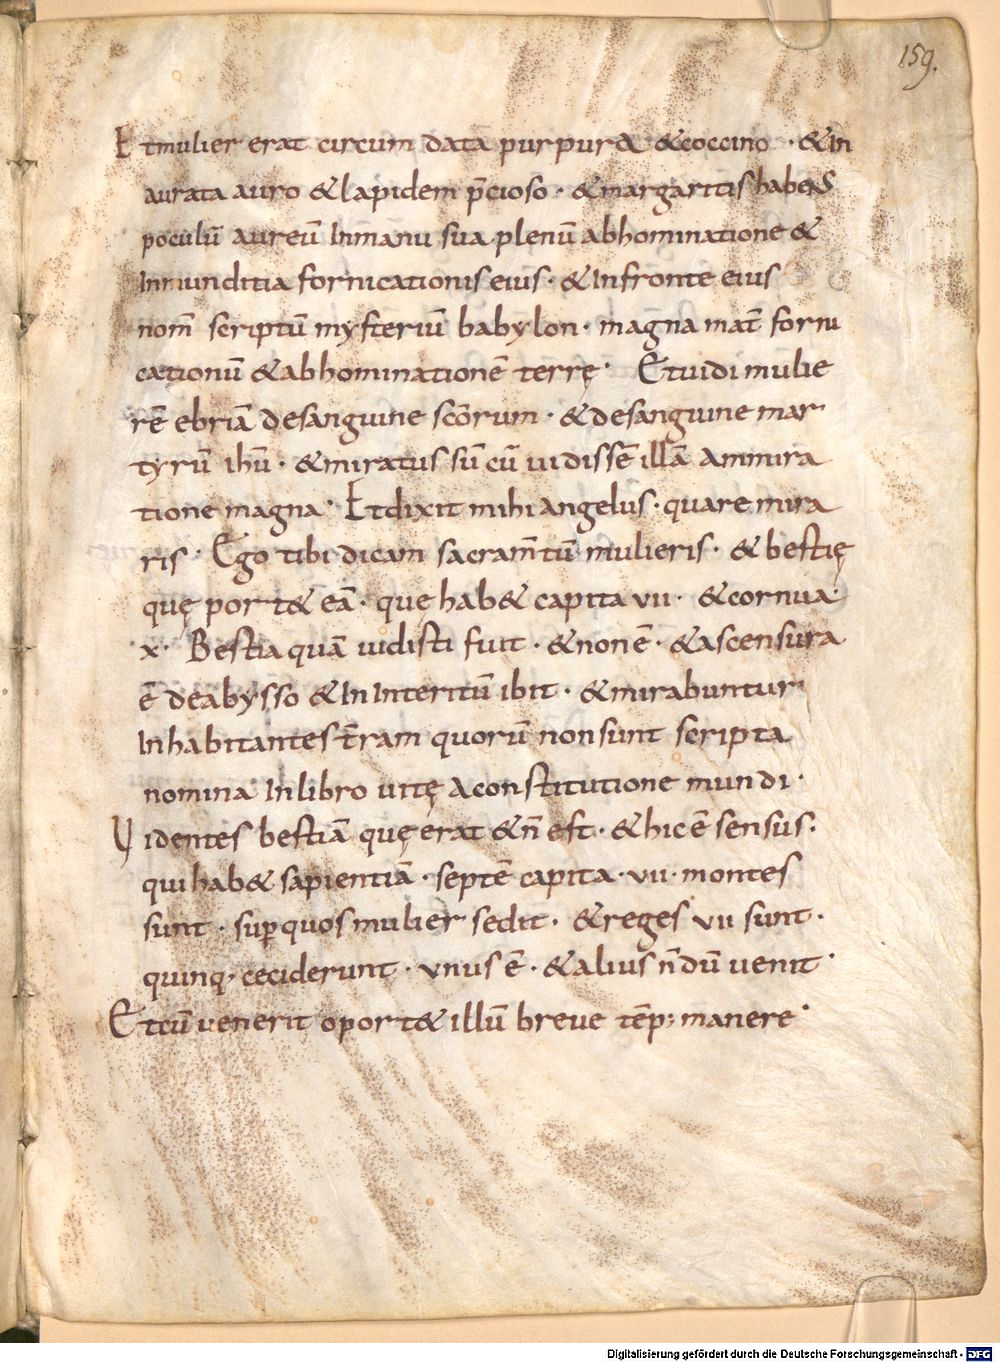 159.
Et mulier erat circum data purpura & coccino · & in
aurata auro & lapidem p̄cioso · & margaritis habens
poculū aureū Inmanu sua plenū abhominatione &
Inmunditia fornicationis eius · & Infronte eius
nom̄ scriptū mysteriū babylon · magna mat̄ forni
cationū & abhominationē terrę · Et uidi mulie
rē ebriā desanguine sc̄orum · & desanguine mar
tyrū ih̄u · & miratus sū cū uidissē illā ammira
tione magna · Et dixit mihi angelus · quare mira
ris · Ego tibi dicam sacram̄tū mulieris · & bestię
quę port& eā · que hab& capita vii · & cornua
·x· Bestia quā uidisti fuit · & non ē · & ascensura
ē deabysso & In Interitū ibit · & mirabuntur
Inhabitantes t̄ram quorū non sunt scripta
nomina In libro uitę a constitutione mundi ·
Videntes bestiā quę erat & n̄ est · & hic ē sensus ·
qui hab& sapientiā · septē capita · vii · montes
sunt · sup̱ quos mulier sedit · & reges vii sunt ·
quinq· ceciderunt · unus ē · & alius n̄dū uenit ·
Et cū venerit oport& illū breue tēp; manere ·
Digitalisierung gefördert durch die Deutsche Forschungsgemeinschaft - DFG